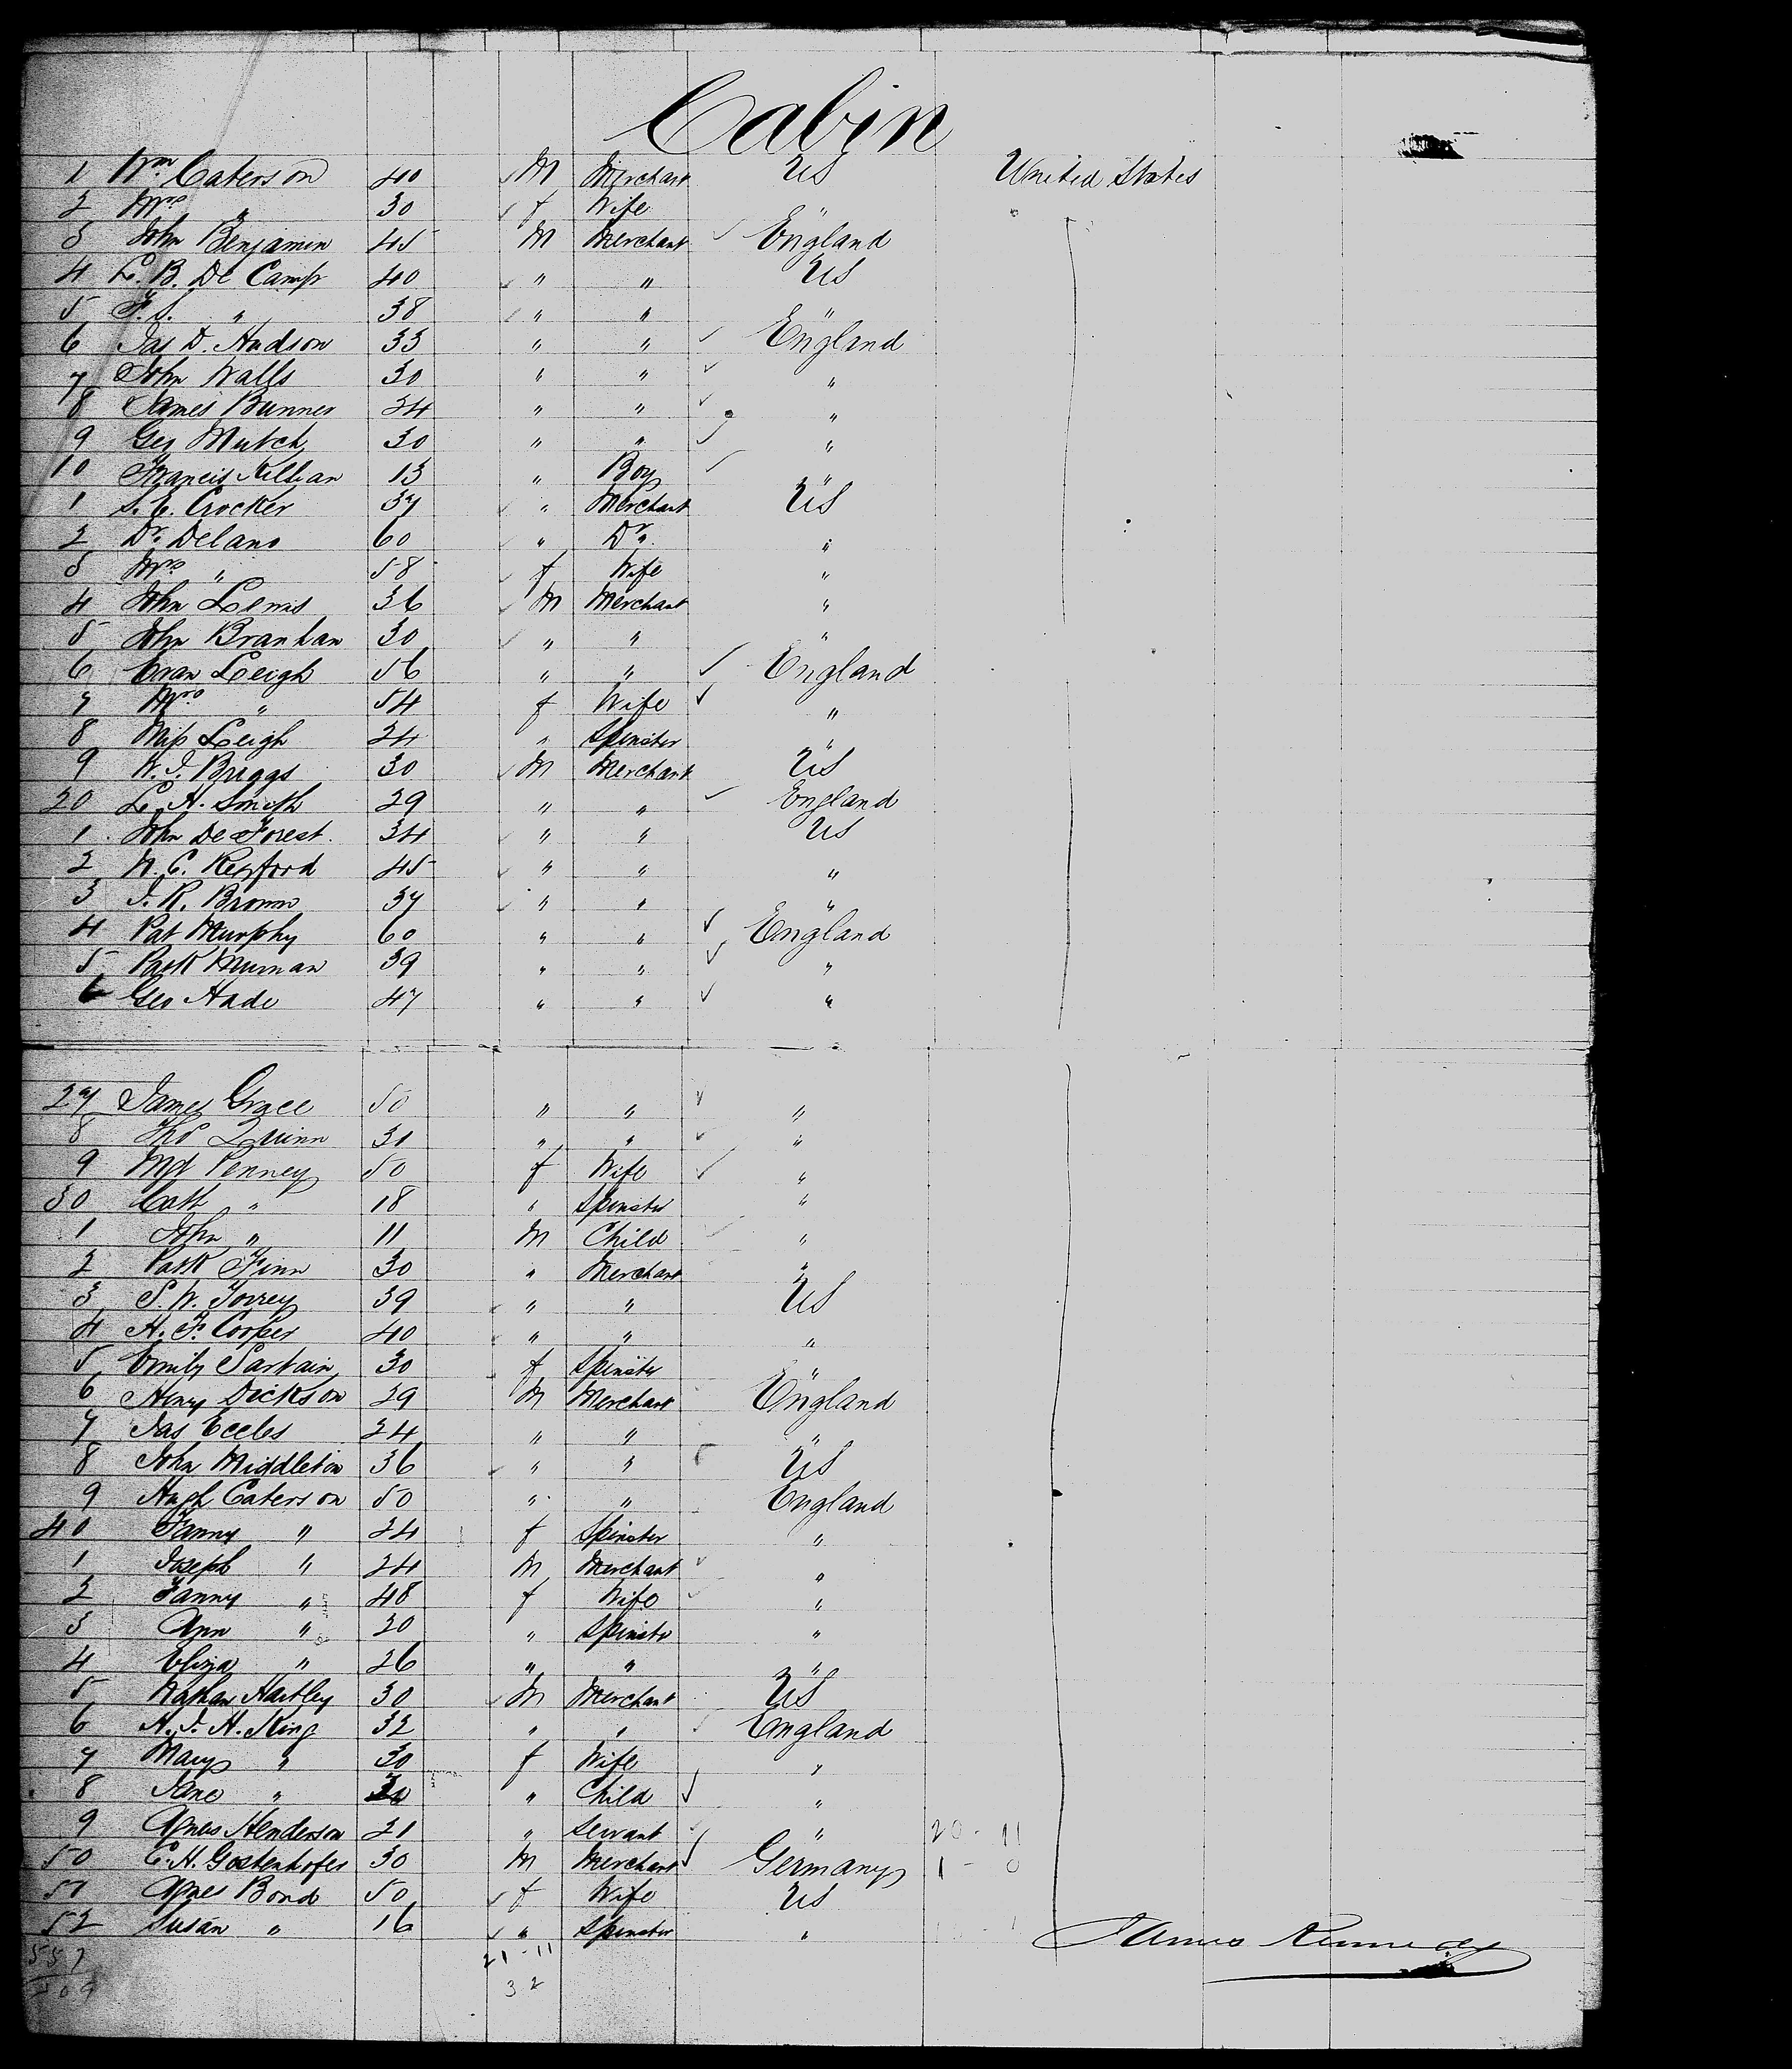 Cabin
1 Wm Caterson 40 M Merchant US United States
2 Mrs " 30 f Wife "
3 John Benjamin 45 M Merchant England
4 L. B. De Camp 40 " " US
5 F. S. " 38 " " "
6 Jas D. Hudson 33 " " England
7 John Walls 30 " " "
8 James Bunner 34 " " "
9 Geo Mutch 30 " " "
10 Francis Killian 13 " Boy "
1 S. E. Crocker 37 " Merchant US
2 Dr. Delano 60 " Dr. "
3 Mrs " 58 f Wife "
4 John Lewis 36 M Merchant "
5 John Branhan 30 " " "
6 Evan Leigh 56 " " England
7 Mrs " 54 f Wife "
8 Miss Leigh 24 " Spinster "
9 W. J. Briggs 30 M Merchant US
20 L. H. Smith 29 " " England
1 John De Forest 34 " " US
2 N. C. Rexford 45 " " "
3 J. R. Brown 37 " " "
4 Pat Murphy 60 " " England
5 Patk Murnan 39 " " "
6 Geo Hade 47 " " "
27 James Grace 50 " " "
8 Thos Quinn 30 " " "
9 Mgt Penney 50 f Wife "
30 Cath " 18 " Spinster "
1 John " 11 M Child "
2 Patk Finn 30 " Merchant "
3 S. W. Torrey 39 " " US
4 H. F. Cooper 40 " " "
5 Emily Sartain 30 f Spinster "
6 Henry Dickson 29 M Merchant England
7 Jas Eccles 24 " " "
8 John Middleton 36 " " US
9 Hugh Caterson 50 " " England
40 Fanny " 24 f Spinster "
1 Joseph " 24 M Merchant "
2 Fanny " 48 f Wife "
3 Ann " 20 " Spinster "
4 Eliza " 26 " " "
5 Nathan Hartley 30 M Merchant US
6 H. J. H. King 32 " " England
7 Mary " 30 f Wife "
8 Jane " " Child "
9 Agnes Henderson 21 " Servant " 20 - 11
50 C. H. Gostenhofer 30 M Merchant Germany 1 - 0
51 Agnes Bond 50 f Wife US
52 Susan " 16 " Spinster "
James Kennedy
557 21 - 11
32